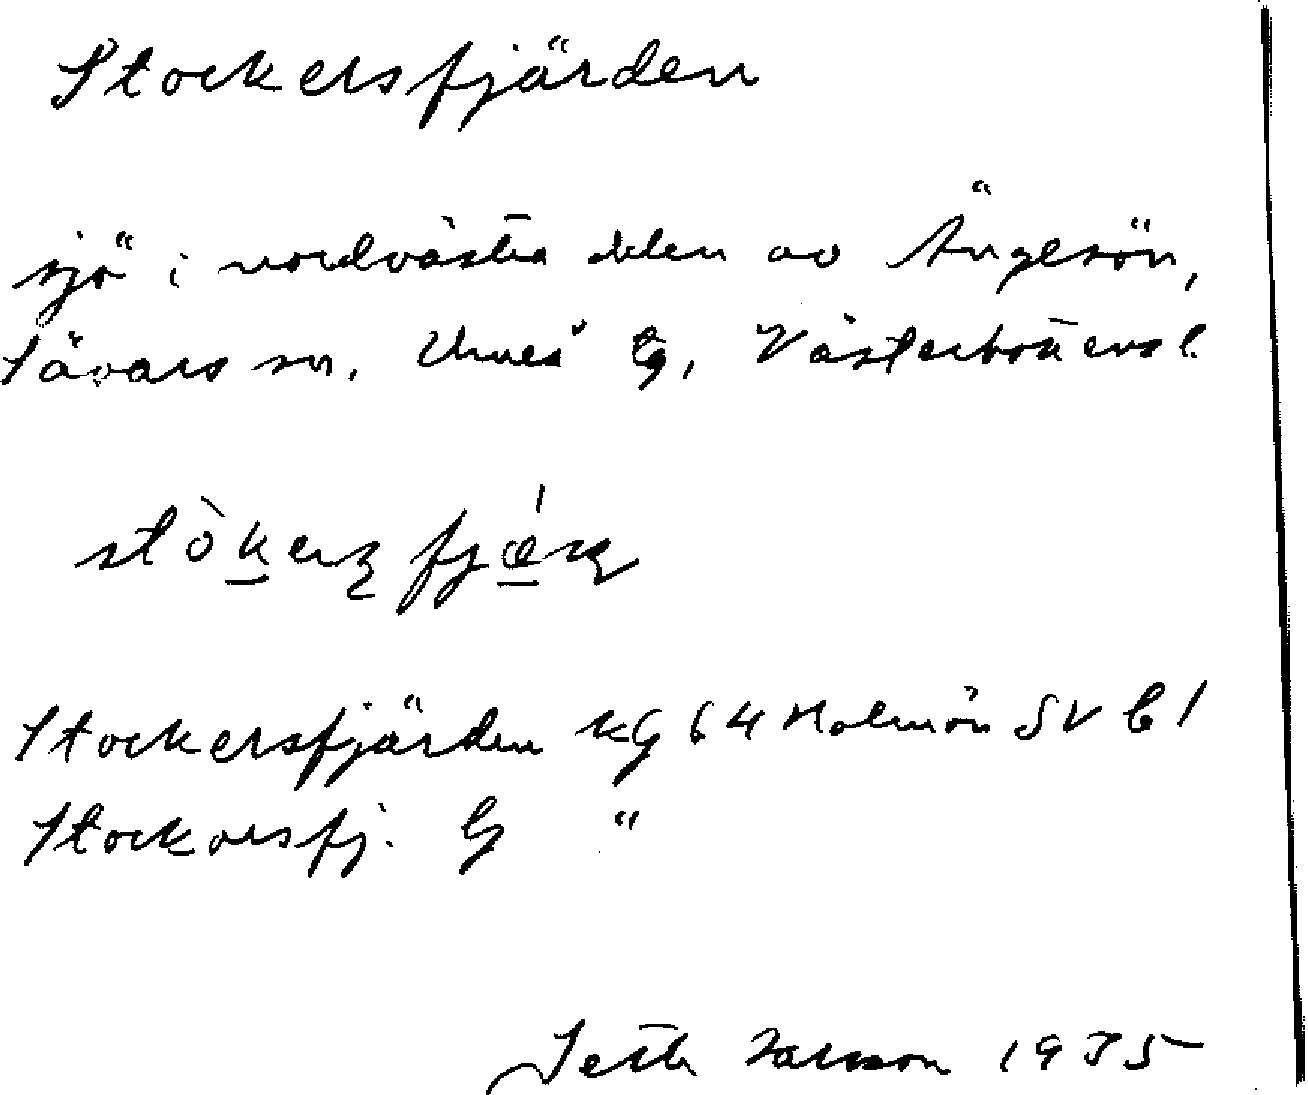 Stockersfjärden
sjö i nordvästra delen av Ängesön,
Sävars sn, Umeå tg, Västerbottens l.
stòkerʂ fjǽɳ
Stockersfjärden kg 64 Holmön SV C1
Stockorsfj. G "
Seth Larsson 1975